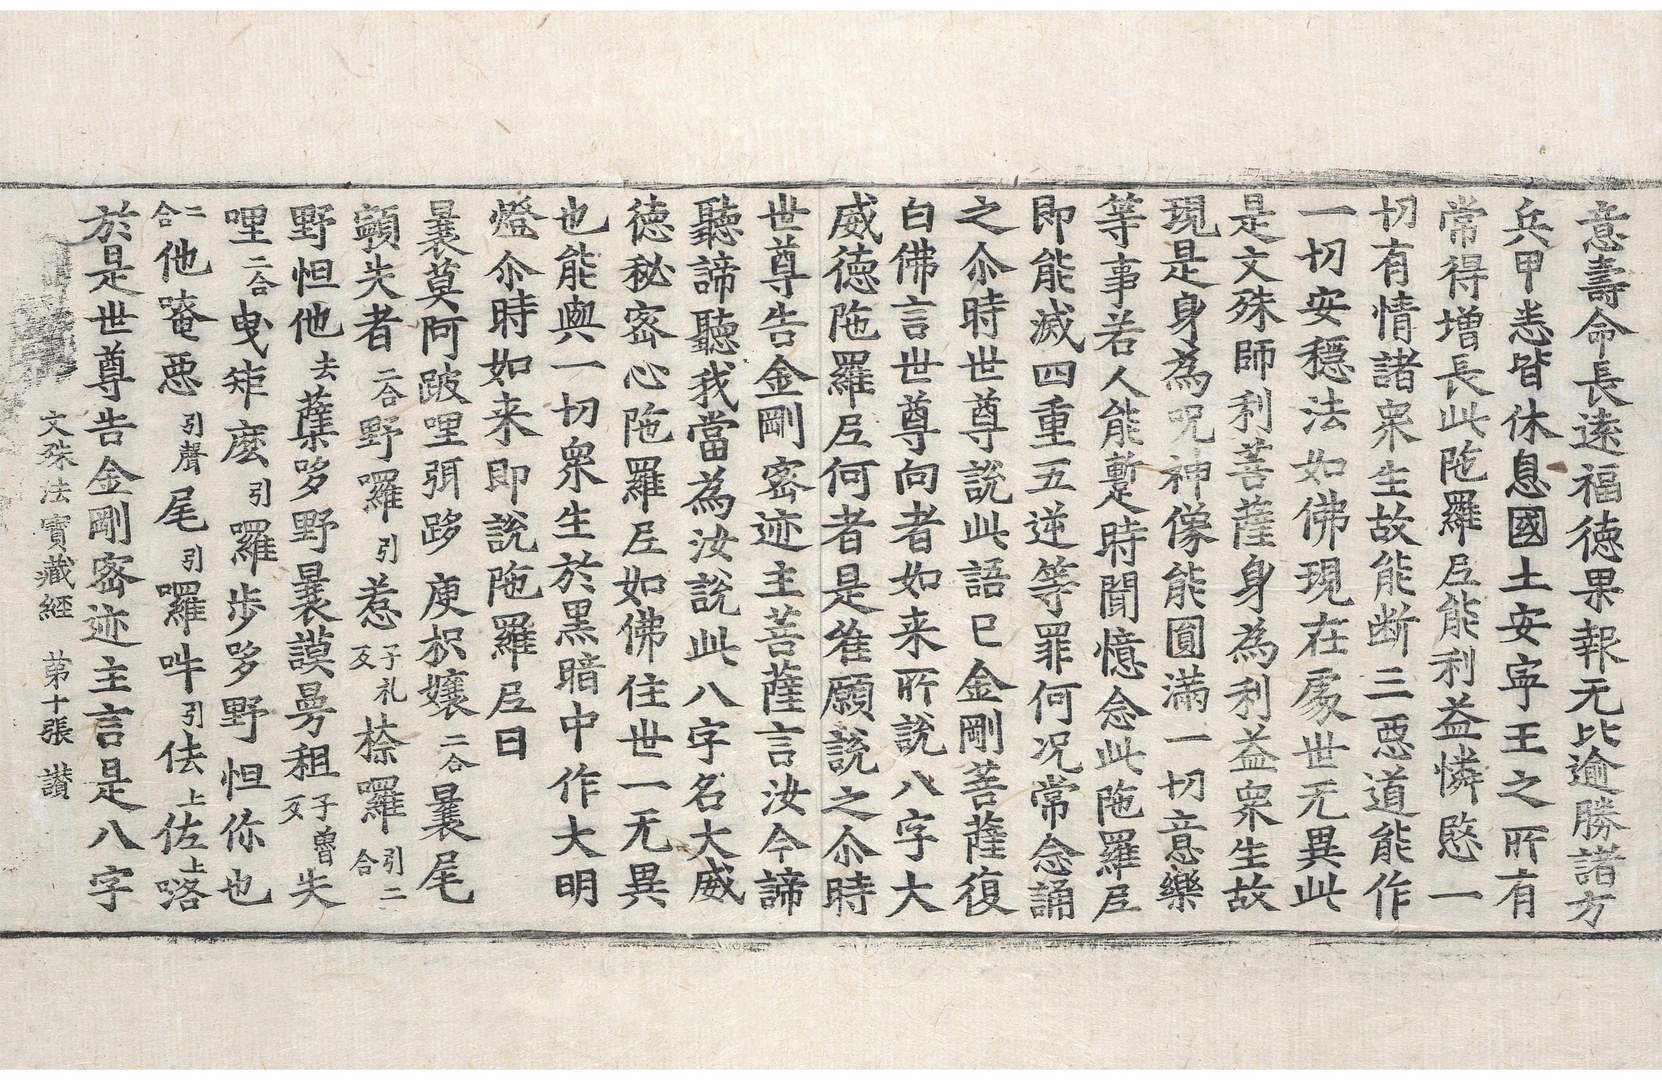 意壽命長遠福德果報无比逾勝諸方
兵甲悉皆休息國土安寧王之所有
常得增長此陁羅尼能利益憐愍一
切有情諸衆生故能断三惡道能作
一切安穩法如佛現在處世无異此
是文殊師利菩薩身為利益衆生故
現是身為呪神像能圓滿一切意樂
等事若人能蹔時聞憶念此陁羅尼
即能滅四重五逆等罪何况常念誦
之尒時世尊說此語已金剛菩薩復
白佛言世尊向者如来所說八字大
威德陁羅尼何者是唯願說之尒時
世尊告金剛密迹主菩薩言汝今諦
聽諦聽我當為汝說此八字名大威
德秘密心陁羅尼如佛住世一无異
也能與一切衆生於黑暗中作大明
燈尒時如来即說陁羅尼曰
曩莫阿跛哩弭哆庾枳孃二合曩尾
顊失者二合野囉引惹子礼反捺囉引二合
野怛他去蘖哆野曩謨曼祖子曾反失
哩二合曳矩麼引羅步哆野怛你也
二合他唵惡引聲尾引囉吽引佉上佐上咯
於是世尊告金剛密迹主言是八字
文殊法寶藏經 第十張 讃